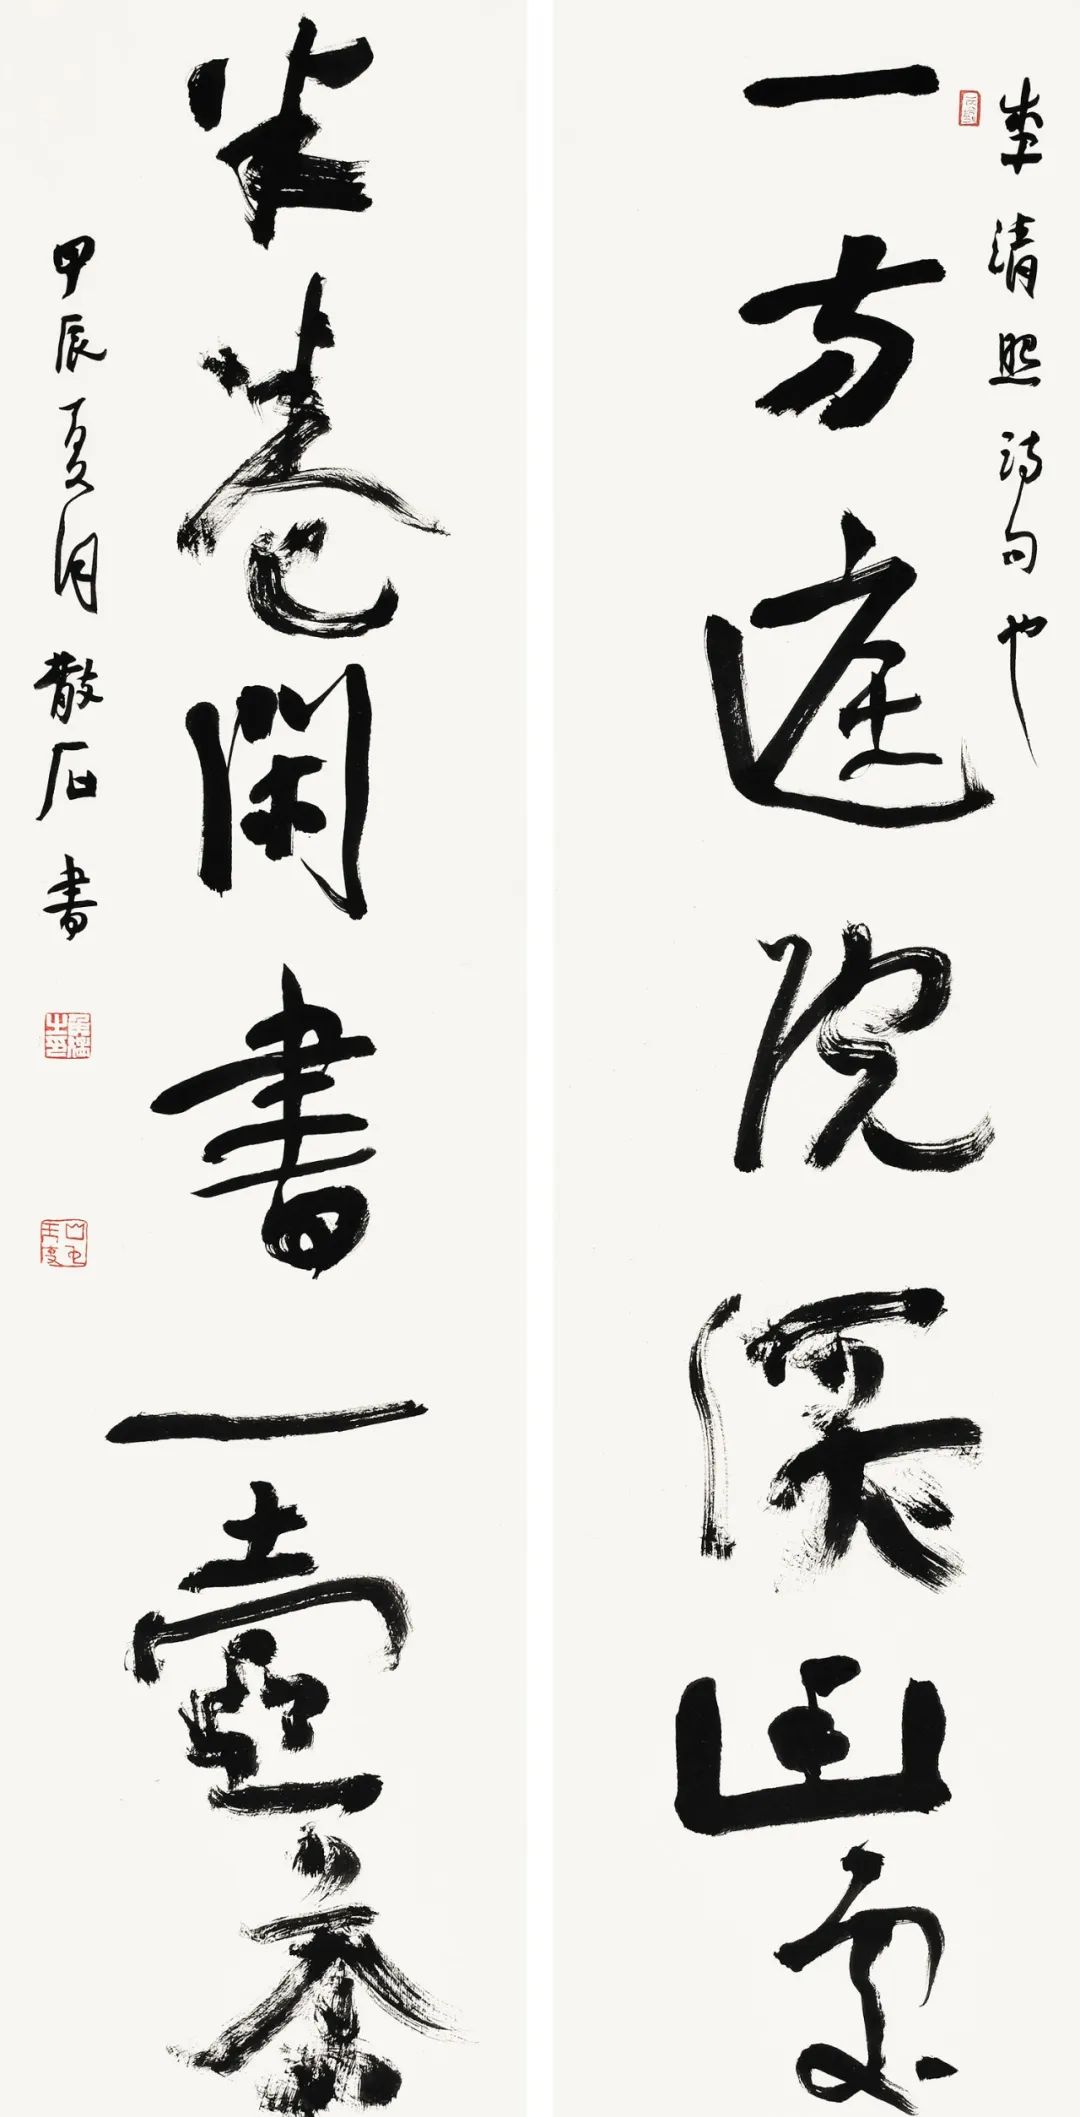 李清照詩句也
一方庭院深幽處
半卷閑書一壺茶
甲辰夏月散石書